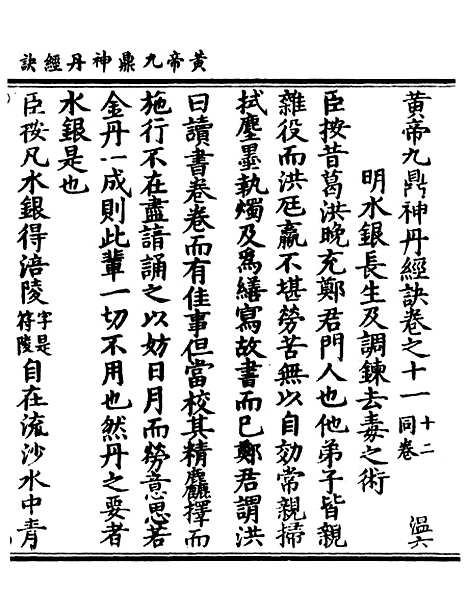 黃帝九鼎神丹經訣
黃帝九鼎神丹經訣卷之十一 十二同卷 温六
明水銀長生及調鍊去毒之術
臣按昔葛洪晚充鄭君門人也他弟子皆親
雜役而洪尫羸不堪勞苦無以自効常親掃
拭塵墨執燭及爲繕寫故書而已鄭君謂洪
曰讀書卷卷而有佳事但當校其精麤擇而
施行不在盡諳誦之以妨日月而勞意思若
金丹一成則此輩一切不用也然丹之要者
水銀是也
臣按凡水銀得涪陵字是符陵自在流沙水中青